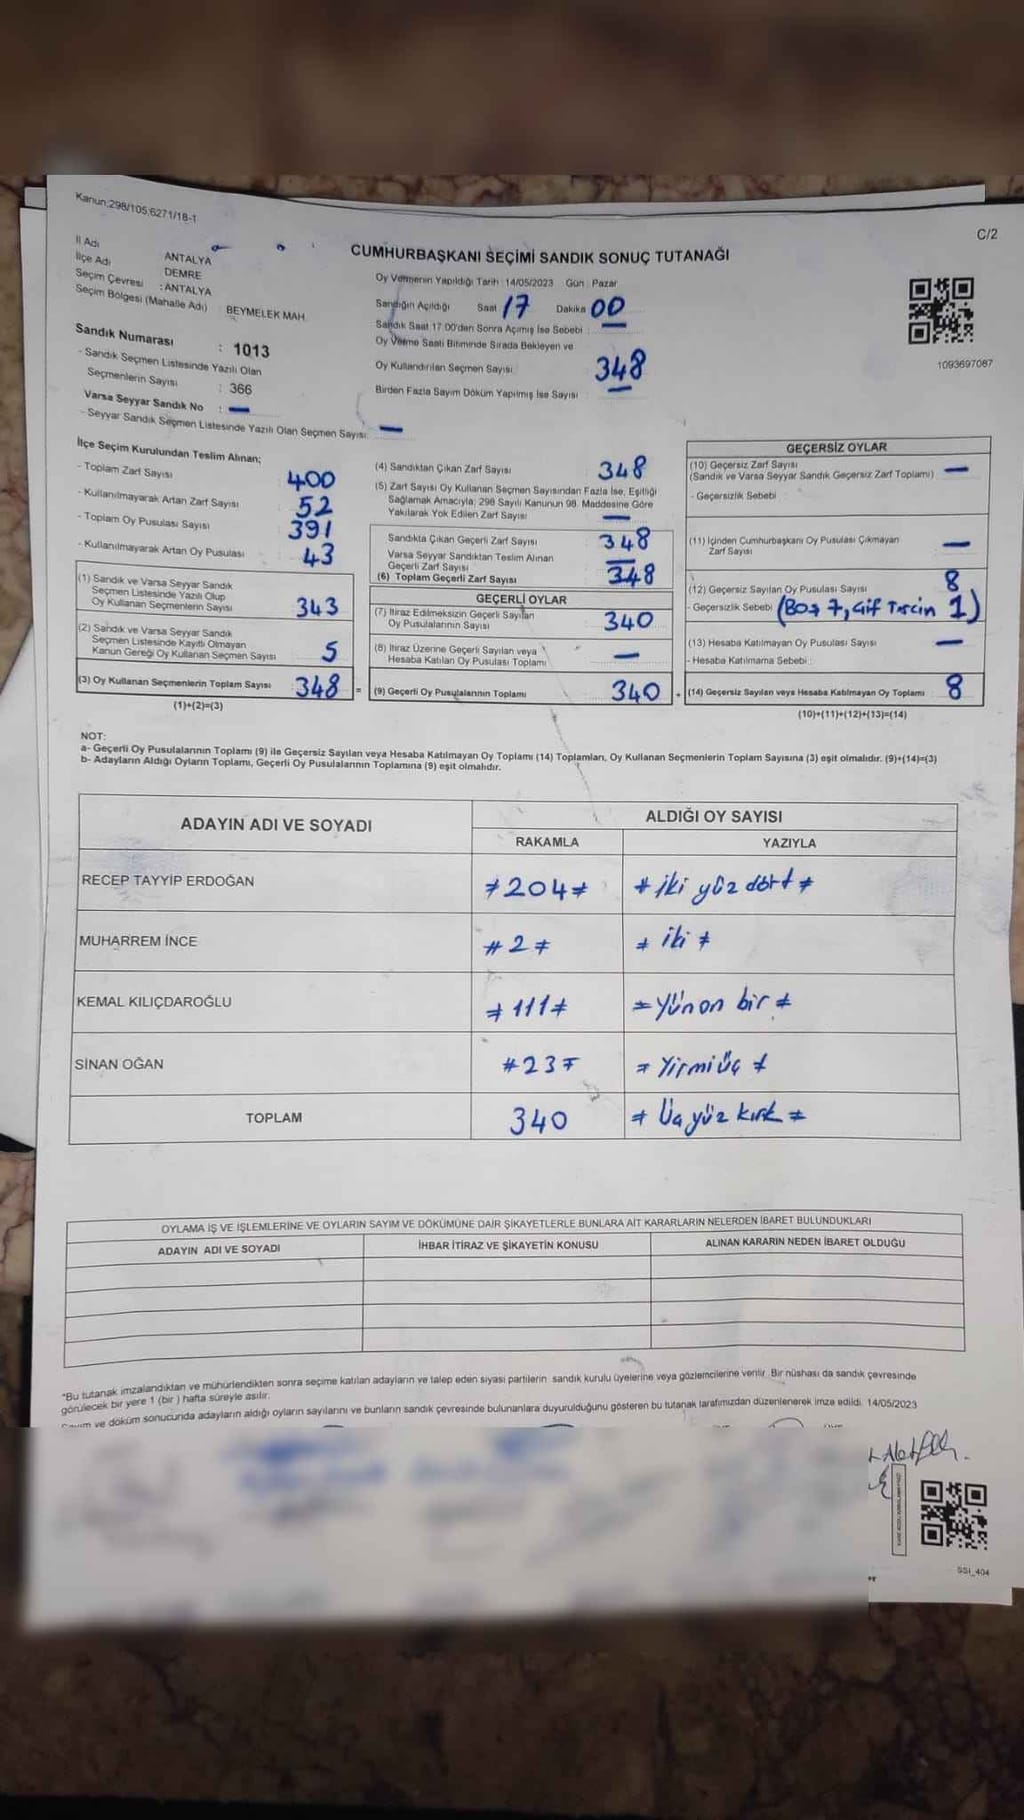 Kanun:298/105;6271/18-1
C/2
CUMHURBAŞKANI SEÇİMİ SANDIK SONUÇ TUTANAĞI
İl Adı ANTALYA
İlçe Adı DEMRE
Seçim Çevresi : ANTALYA
Seçim Bölgesi (Mahalle Adı) : BEYMELEK MAH.
Sandık Numarası : 1013
- Sandık Seçmen Listesinde Yazılı Olan
Seçmenlerin Sayısı : 366
Varsa Seyyar Sandık No : —
- Seyyar Sandık Seçmen Listesinde Yazılı Olan Seçmen Sayısı: —
Oy Vermenin Yapıldığı Tarih : 14/05/2023 Gün : Pazar
Sandığın Açıldığı Saat 17 Dakika 00
Sandık Saat 17.00'dan Sonra Açılmış İse Sebebi : —
Oy Verme Saati Bitiminde Sırada Bekleyen ve
Oy Kullandırılan Seçmen Sayısı 348
Birden Fazla Sayım Döküm Yapılmış İse Sayısı —
1093697087
İlçe Seçim Kurulundan Teslim Alınan;
- Toplam Zarf Sayısı : 400
- Kullanılmayarak Artan Zarf Sayısı : 52
- Toplam Oy Pusulası Sayısı : 391
- Kullanılmayarak Artan Oy Pusulası : 43
(1) Sandık ve Varsa Seyyar Sandık
Seçmen Listesinde Yazılı Olup
Oy Kullanan Seçmenlerin Sayısı : 343
(2) Sandık ve Varsa Seyyar Sandık
Seçmen Listesinde Kayıtlı Olmayan
Kanun Gereği Oy Kullanan Seçmen Sayısı : 5
(3) Oy Kullanan Seçmenlerin Toplam Sayısı : 348 =
(1)+(2)=(3)
(4) Sandıktan Çıkan Zarf Sayısı 348
(5) Zarf Sayısı Oy Kullanan Seçmen Sayısından Fazla İse, Eşitliği
Sağlamak Amacıyla; 298 Sayılı Kanunun 98. Maddesine Göre
Yakılarak Yok Edilen Zarf Sayısı : —
Sandıkta Çıkan Geçerli Zarf Sayısı : 348
Varsa Seyyar Sandıktan Teslim Alınan
Geçerli Zarf Sayısı : —
(6) Toplam Geçerli Zarf Sayısı : 348
GEÇERLİ OYLAR
(7) İtiraz Edilmeksizin Geçerli Sayılan
Oy Pusulalarının Sayısı : 340
(8) İtiraz Üzerine Geçerli Sayılan veya
Hesaba Katılan Oy Pusulası Toplamı : —
(9) Geçerli Oy Pusulalarının Toplamı : 340 +
GEÇERSİZ OYLAR
(10) Geçersiz Zarf Sayısı
(Sandık ve Varsa Seyyar Sandık Geçersiz Zarf Toplamı) : —
- Geçersizlik Sebebi :
(11) İçinden Cumhurbaşkanı Oy Pusulası Çıkmayan
Zarf Sayısı : —
(12) Geçersiz Sayılan Oy Pusulası Sayısı : 8
- Geçersizlik Sebebi : (Boş 7, Çif Tercin 1)
(13) Hesaba Katılmayan Oy Pusulası Sayısı : —
- Hesaba Katılmama Sebebi :
(14) Geçersiz Sayılan veya Hesaba Katılmayan Oy Toplamı : 8
(10)+(11)+(12)+(13)=(14)
NOT:
a- Geçerli Oy Pusulalarının Toplamı (9) ile Geçersiz Sayılan veya Hesaba Katılmayan Oy Toplamı (14) Toplamları, Oy Kullanan Seçmenlerin Toplam Sayısına (3) eşit olmalıdır. (9)+(14)=(3)
b- Adayların Aldığı Oyların Toplamı, Geçerli Oy Pusulalarının Toplamına (9) eşit olmalıdır.
ADAYIN ADI VE SOYADI ALDIĞI OY SAYISI
RAKAMLA YAZIYLA
RECEP TAYYİP ERDOĞAN ≠204≠ ≠ iki yüz dört ≠
MUHARREM İNCE #2≠ ≠ iki ≠
KEMAL KILIÇDAROĞLU ≠111≠ = Yünon bir ≠
SİNAN OĞAN #23≠ = Yirmi üç ≠
TOPLAM 340 ≠ Üç yüz kırk =
OYLAMA İŞ VE İŞLEMLERİNE VE OYLARIN SAYIM VE DÖKÜMÜNE DAİR ŞİKAYETLERLE BUNLARA AİT KARARLARIN NELERDEN İBARET BULUNDUKLARI
ADAYIN ADI VE SOYADI İHBAR İTİRAZ VE ŞİKAYETİN KONUSU ALINAN KARARIN NEDEN İBARET OLDUĞU
"Bu tutanak imzalandıktan ve mühürlendikten sonra seçime katılan adayların ve talep eden siyasi partilerin sandık kurulu üyelerine veya gözlemcilerine verilir. Bir nüshası da sandık çevresinde
görülecek bir yere 1 (bir) hafta süreyle asılır.
Sayım ve döküm sonucunda adayların aldığı oyların sayılarını ve bunların sandık çevresinde bulunanlara duyurulduğunu gösteren bu tutanak tarafımızdan düzenlenerek imza edildi. 14/05/2023
SSI_404